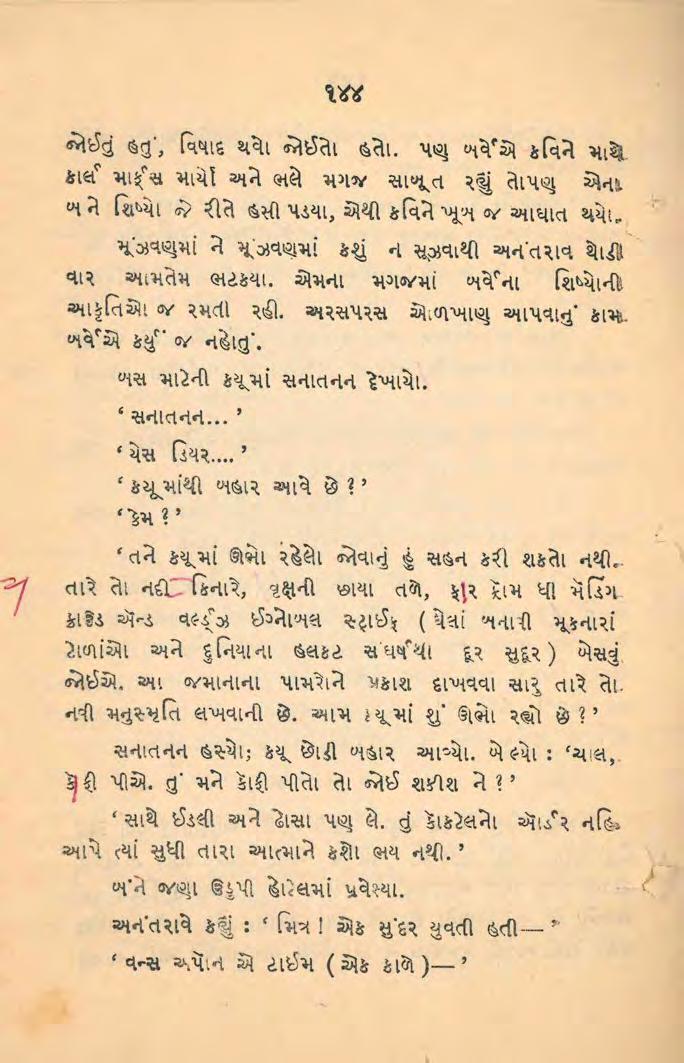 ૧૪૪
જોઈતું હતું, વિષાદ થવો જોઈતો હતો. પણ બર્વેએ કવિને માથે
કાર્લ માર્ક્સ માર્યો અને ભલે મગજ સાબૂત રહ્યું તોપણ એના
બંને શિષ્યો જે રીતે હસી પડયા, એથી કવિને ખૂબ જ આઘાત થયો.
મૂંઝવણમાં ને મૂંઝવણમાં કશું ન સૂઝવાથી અનંતરાવ થોડી
વાર આમતેમ ભટકયા. એમના મગજમાં બર્વેના શિષ્યોની
આકૃતિઓ જ રમતી રહી. અરસપરસ ઓળખાણ આપવાનું કામ
બર્વેએ કર્યું જ નહોતું.
બસ માટેની કયૂમાં સનાતનન દેખાયો.
‘ સનાતનન... ’
‘ યેસ ડિયર.... ’
‘ કયૂમાંથી બહાર આવે છે ? ’
‘ કેમ ? ’
‘ તને કયૂમાં ઊભો રહેલો જોવાનું હું સહન કરી શકતો નથી.
તારે તો નદી કિનારે, વૃક્ષની છાયા તળે, ફાર ફ્રોમ ધી મૅડિંગ
ક્રાઉડ ઍન્ડ વર્લ્ડ્ઝ ઈગ્નોબલ સ્ટ્રાઈફ ( ઘેલાં બનાવી મૂકનારાં
ટોળાંઓ અને દુનિયાના હલકટ સંઘર્ષથી દૂર સુદૂર ) બેસવું
જોઈએ. આ જમાનાના પામરોને પ્રકાશ દાખવવા સારુ તારે તો
નવી મનુસ્મૃતિ લખવાની છે. આમ કયૂમાં શું ઊભો રહ્યો છે ? ’
સનાતનન હસ્યો; કયૂ છોડી બહાર આવ્યો. બોલ્યો : ‘ચાલ,
કૉફી પીએ. તું મને કૉફી પીતો તો જોઈ શકીશ ને ? ’
‘ સાથે ઈડલી અને ઢોસા પણ લે. તું કૉકટેલનો ઑર્ડર નહિ
આપે ત્યાં સુધી તારા આત્માને કશો ભય નથી. ’
બંને જણા ઉડૂપી હોટેલમાં પ્રવેશ્યા.
અનંતરાવે કહ્યું : ‘ મિત્ર ! એક સુંદર યુવતી હતી— ’
‘ વન્સ અપૉન એ ટાઈમ ( એક કાળે )— ’